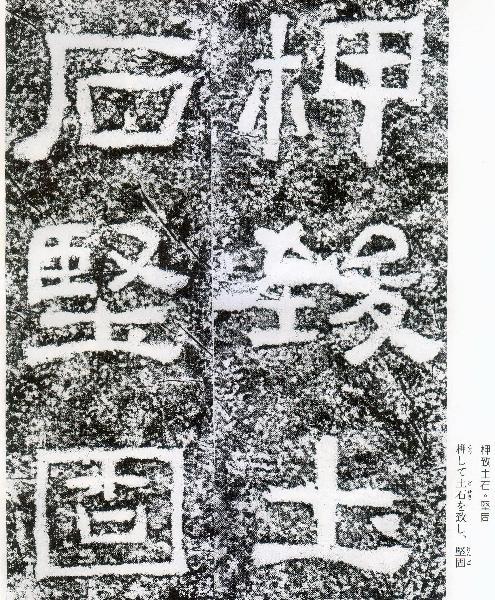 柙致土
石堅固
柙致土石。堅固
柙して土石を致し、堅固